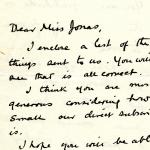 Dear Miss Jonas,
I enclose a list of the
things sent to us. You will
see that is all correct.
I think you are most
generous considering how
small our direct subscri
is.
I hope you will be able